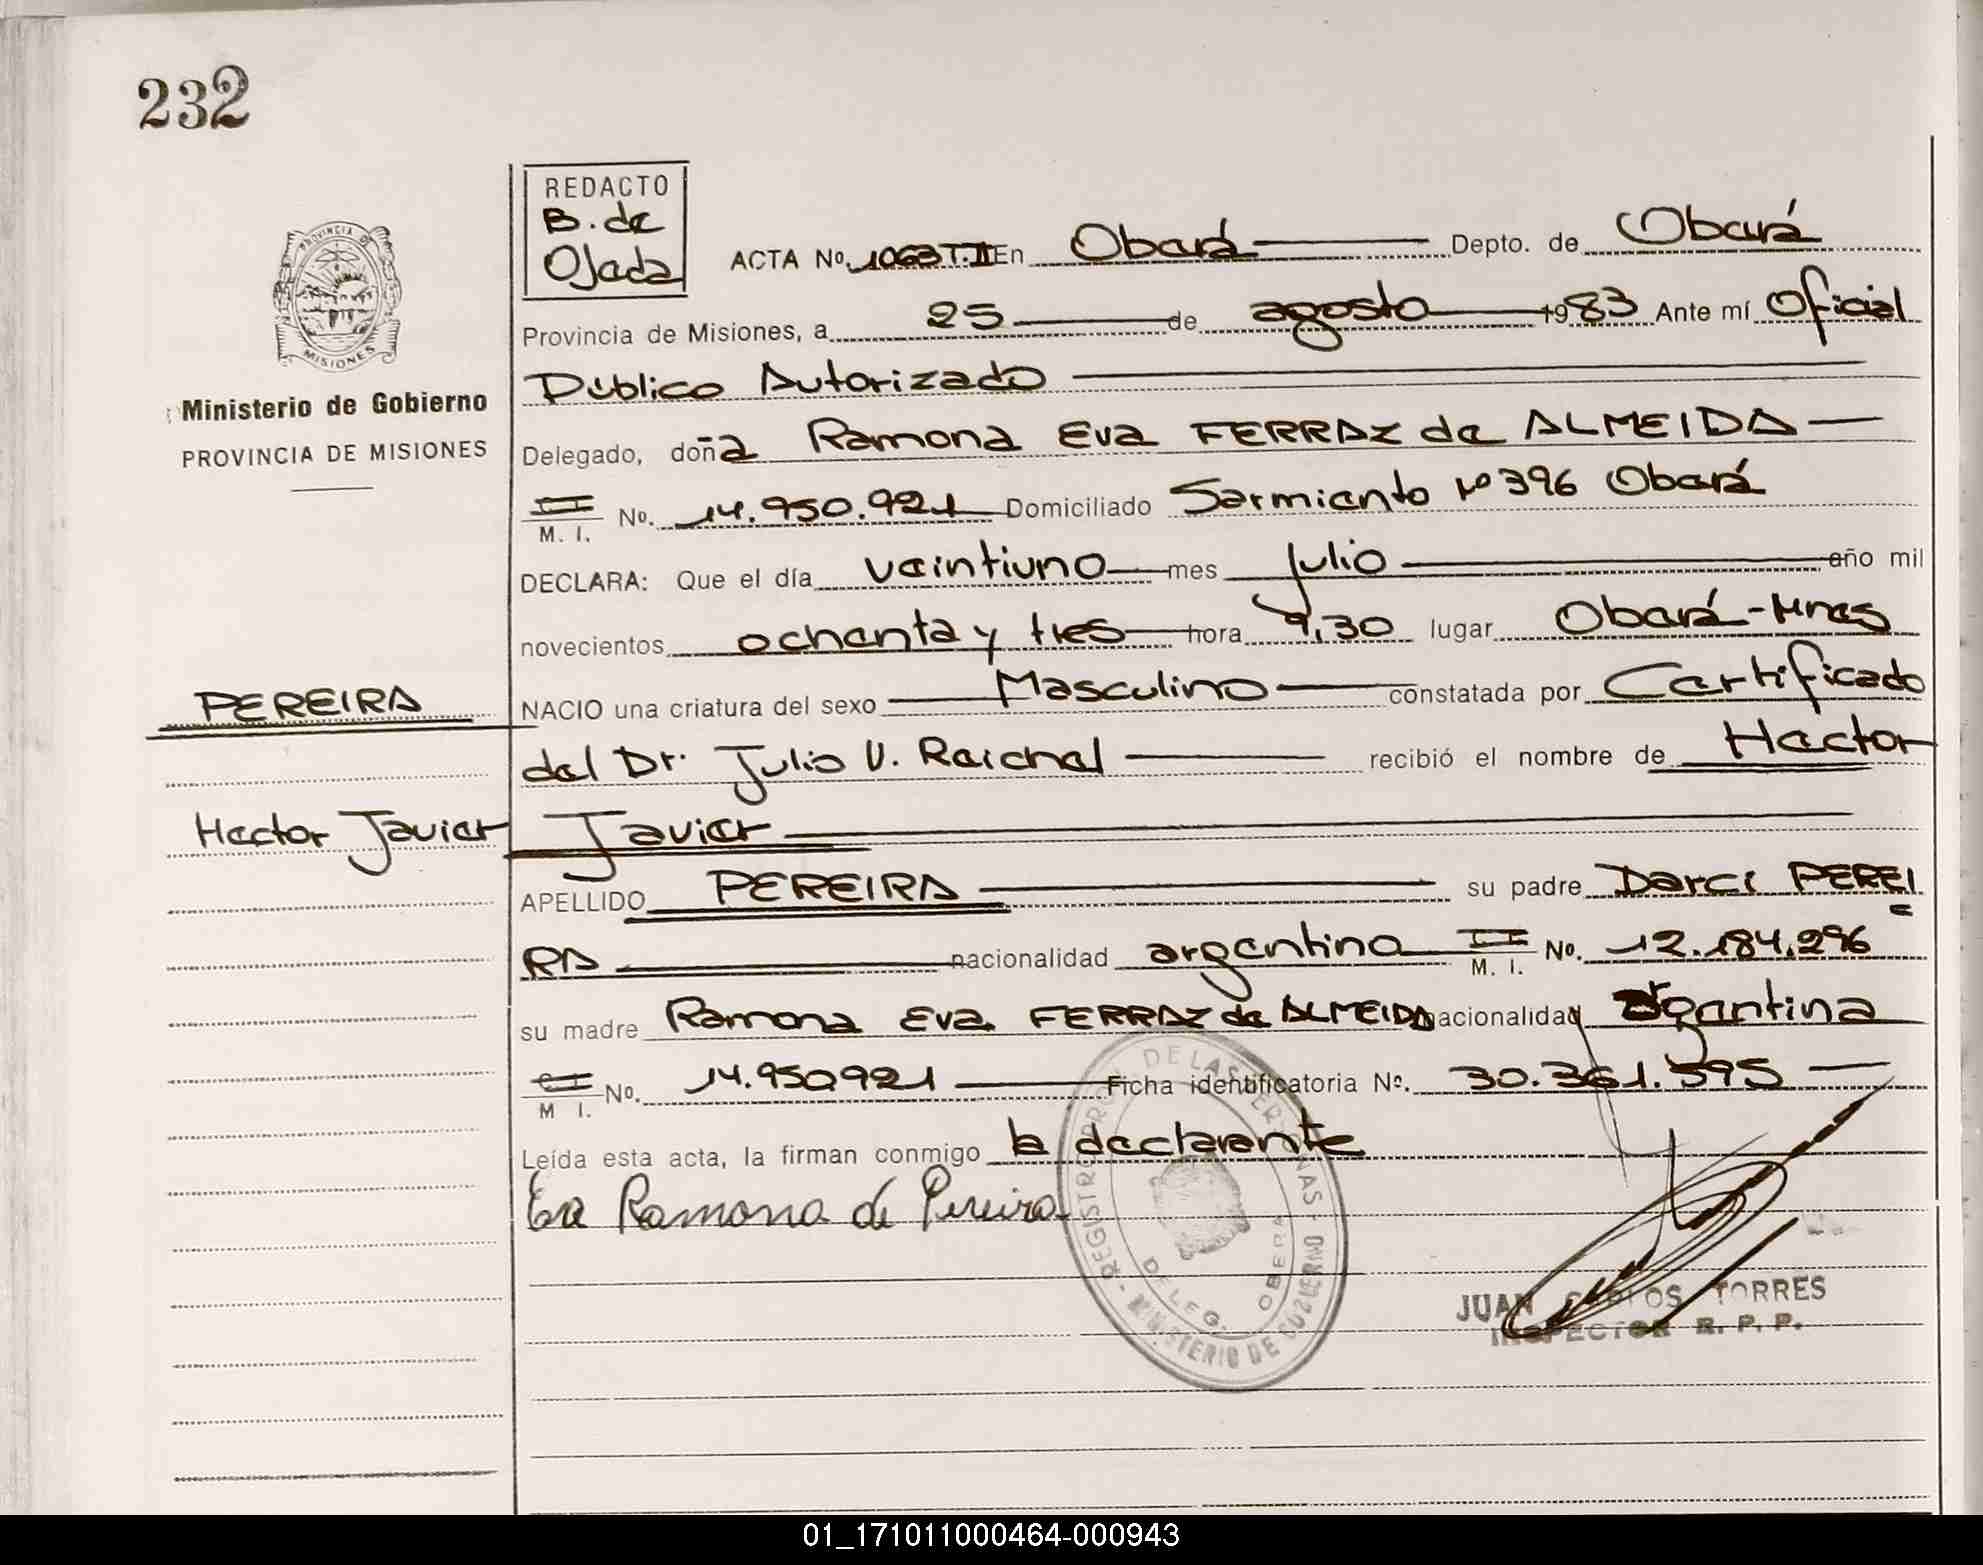 232
REDACTO
B. de
Ojeda
PROVINCIA DE
MISIONES
Ministerio de Gobierno
PROVINCIA DE MISIONES
ACTA No. 1063 T. II En Oberá Depto. de Oberá
Provincia de Misiones, a 25 de agosto 1983 Ante mí Oficial
Público Autorizado
Delegado, doña Ramona Eva FERRAZ de ALMEIDA
M. I. No. 14.950.921 Domiciliado Sarmiento Nº 396 Oberá
DECLARA: Que el día veintiuno mes julio año mil
novecientos ochenta y tres hora 9,30 lugar Oberá-Mnes
PEREIRA
NACIO una criatura del sexo Masculino constatada por Certificado
del Dr. Julio V. Reichel recibió el nombre de Hector
Hector Javier
Javier
APELLIDO PEREIRA su padre Darci PEREI
RA nacionalidad argentina M. I. No. 12.184.296
su madre Ramona Eva FERRAZ de ALMEIDA nacionalidad argentina
M I. No. 14.950921 Ficha identificatoria Nº. 30.361.395
Leída esta acta, la firman conmigo la declarante
Eva Ramona de Pereira
REGISTRO PROV. DE LAS PERSONAS - MINISTERIO DE GOBIERNO
DELEG. OBERA
JUAN CARLOS TORRES
INSPECTOR R. P. P.
01_171011000464-000943